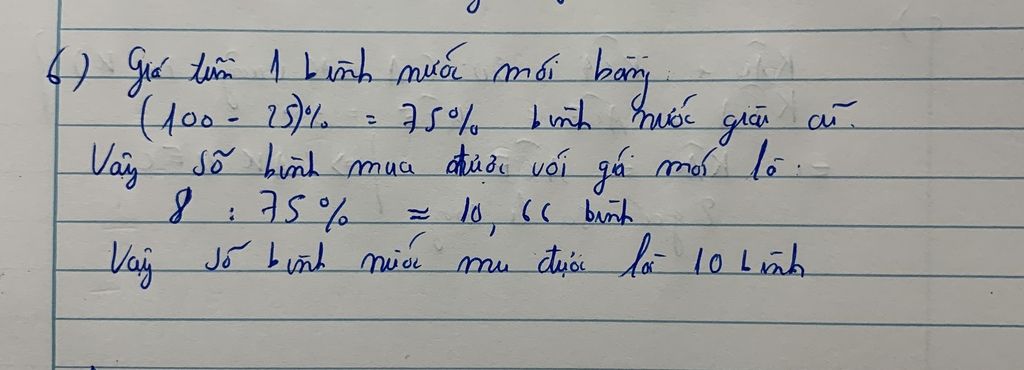 6) Giá tiền 1 bình nước mới bằng:
(100 - 25)% = 75% bình nước giá cũ.
Vậy số bình mua được với giá mới là:
8 : 75% ≈ 10,66 bình
Vậy số bình nước mu được là 10 bình